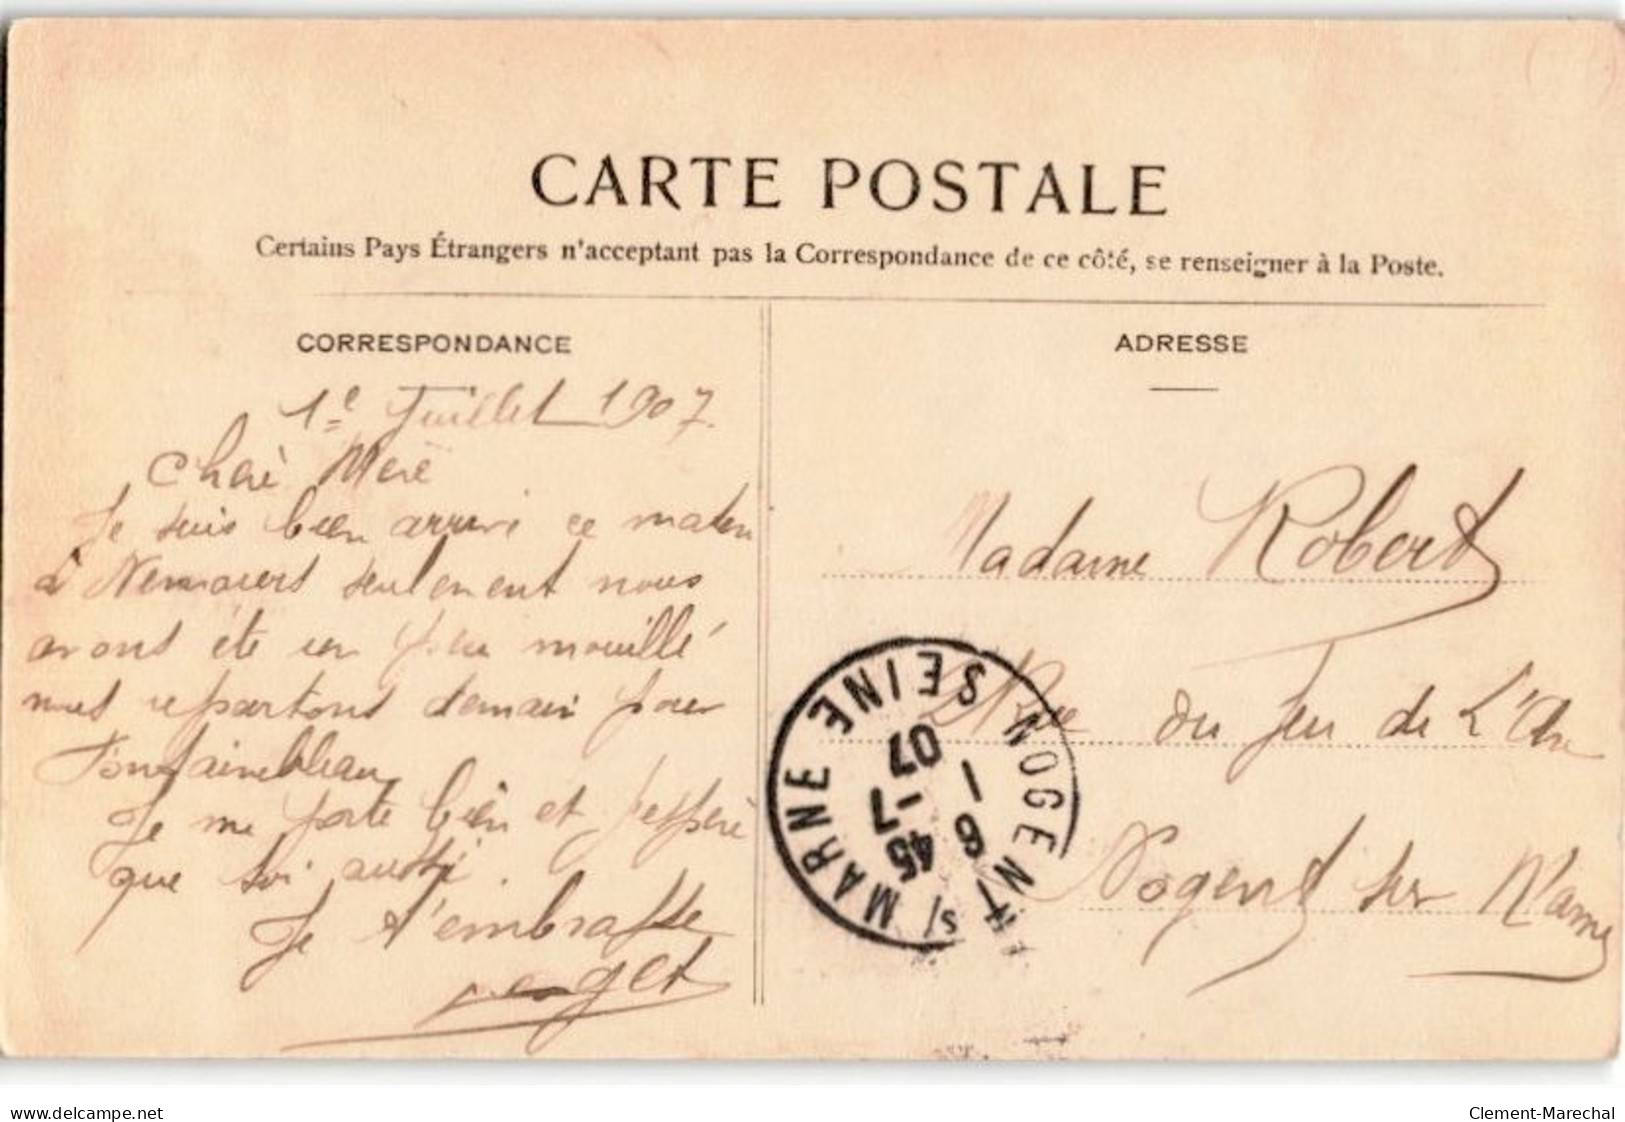 CARTE POSTALE
Certains Pays Étrangers n'acceptant pas la Correspondance de ce côté, se renseigner à la Poste.
CORRESPONDANCE
1e Juillet 1907.
Cherè Merè
Je suis bien arrivé ce maten
à Nemours seulement nous
avons été un peu mouillé
nous repartons demain pour
Fontainebleau
Je me porte bien et j'espère
que toi aussi.
Je t'embrasse
ADRESSE
Madame Robert
Rue du Jeu de L'Arc
Nogent sur Marne
NOGENT S/ MARNE SEINE
6 45
1 -7
07
delcampe.net
Clement-Marechal